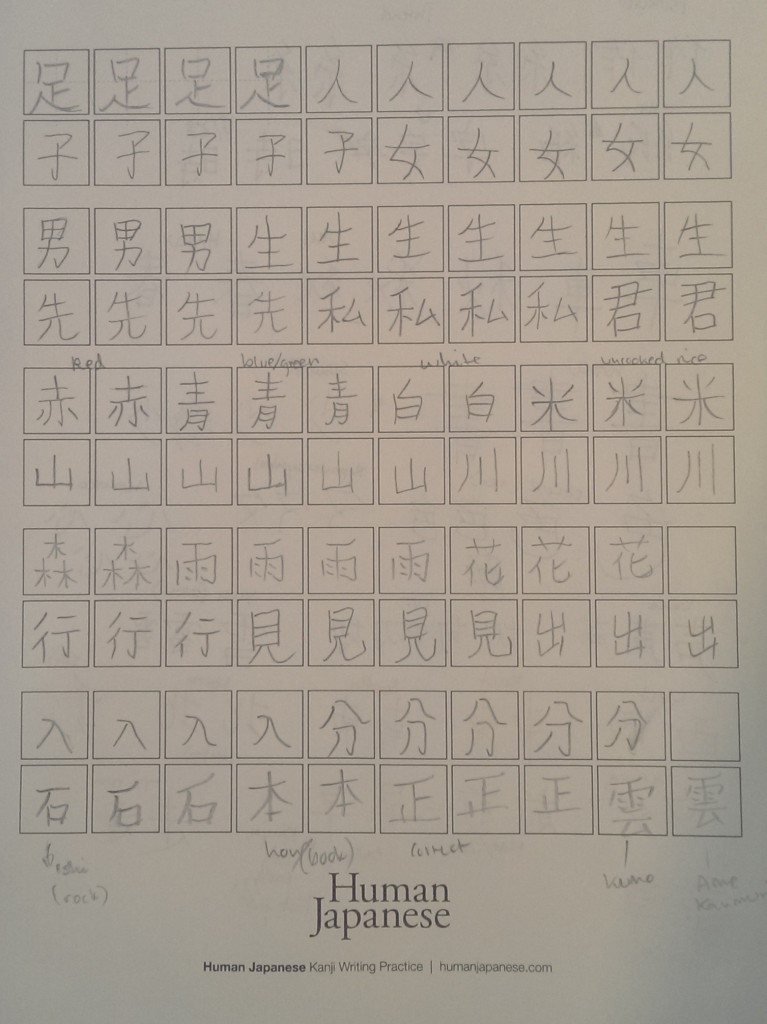 足足足足人人人人人人
子子子子子女女女女女
男男男生生生生生生生
先先先先私私私私君君
red blue/green white uncooked rice
赤赤青青青白白米米米
山山山山山山川川川川
森森雨雨雨雨花花花
行行行見見見見出出出
入入入入分分分分分
石石石本本正正正雲雲
ishi hon (book) correct
(rock) kumo Ame
Human
Japanese
Human Japanese Kanji Writing Practice | humanjapanese.com